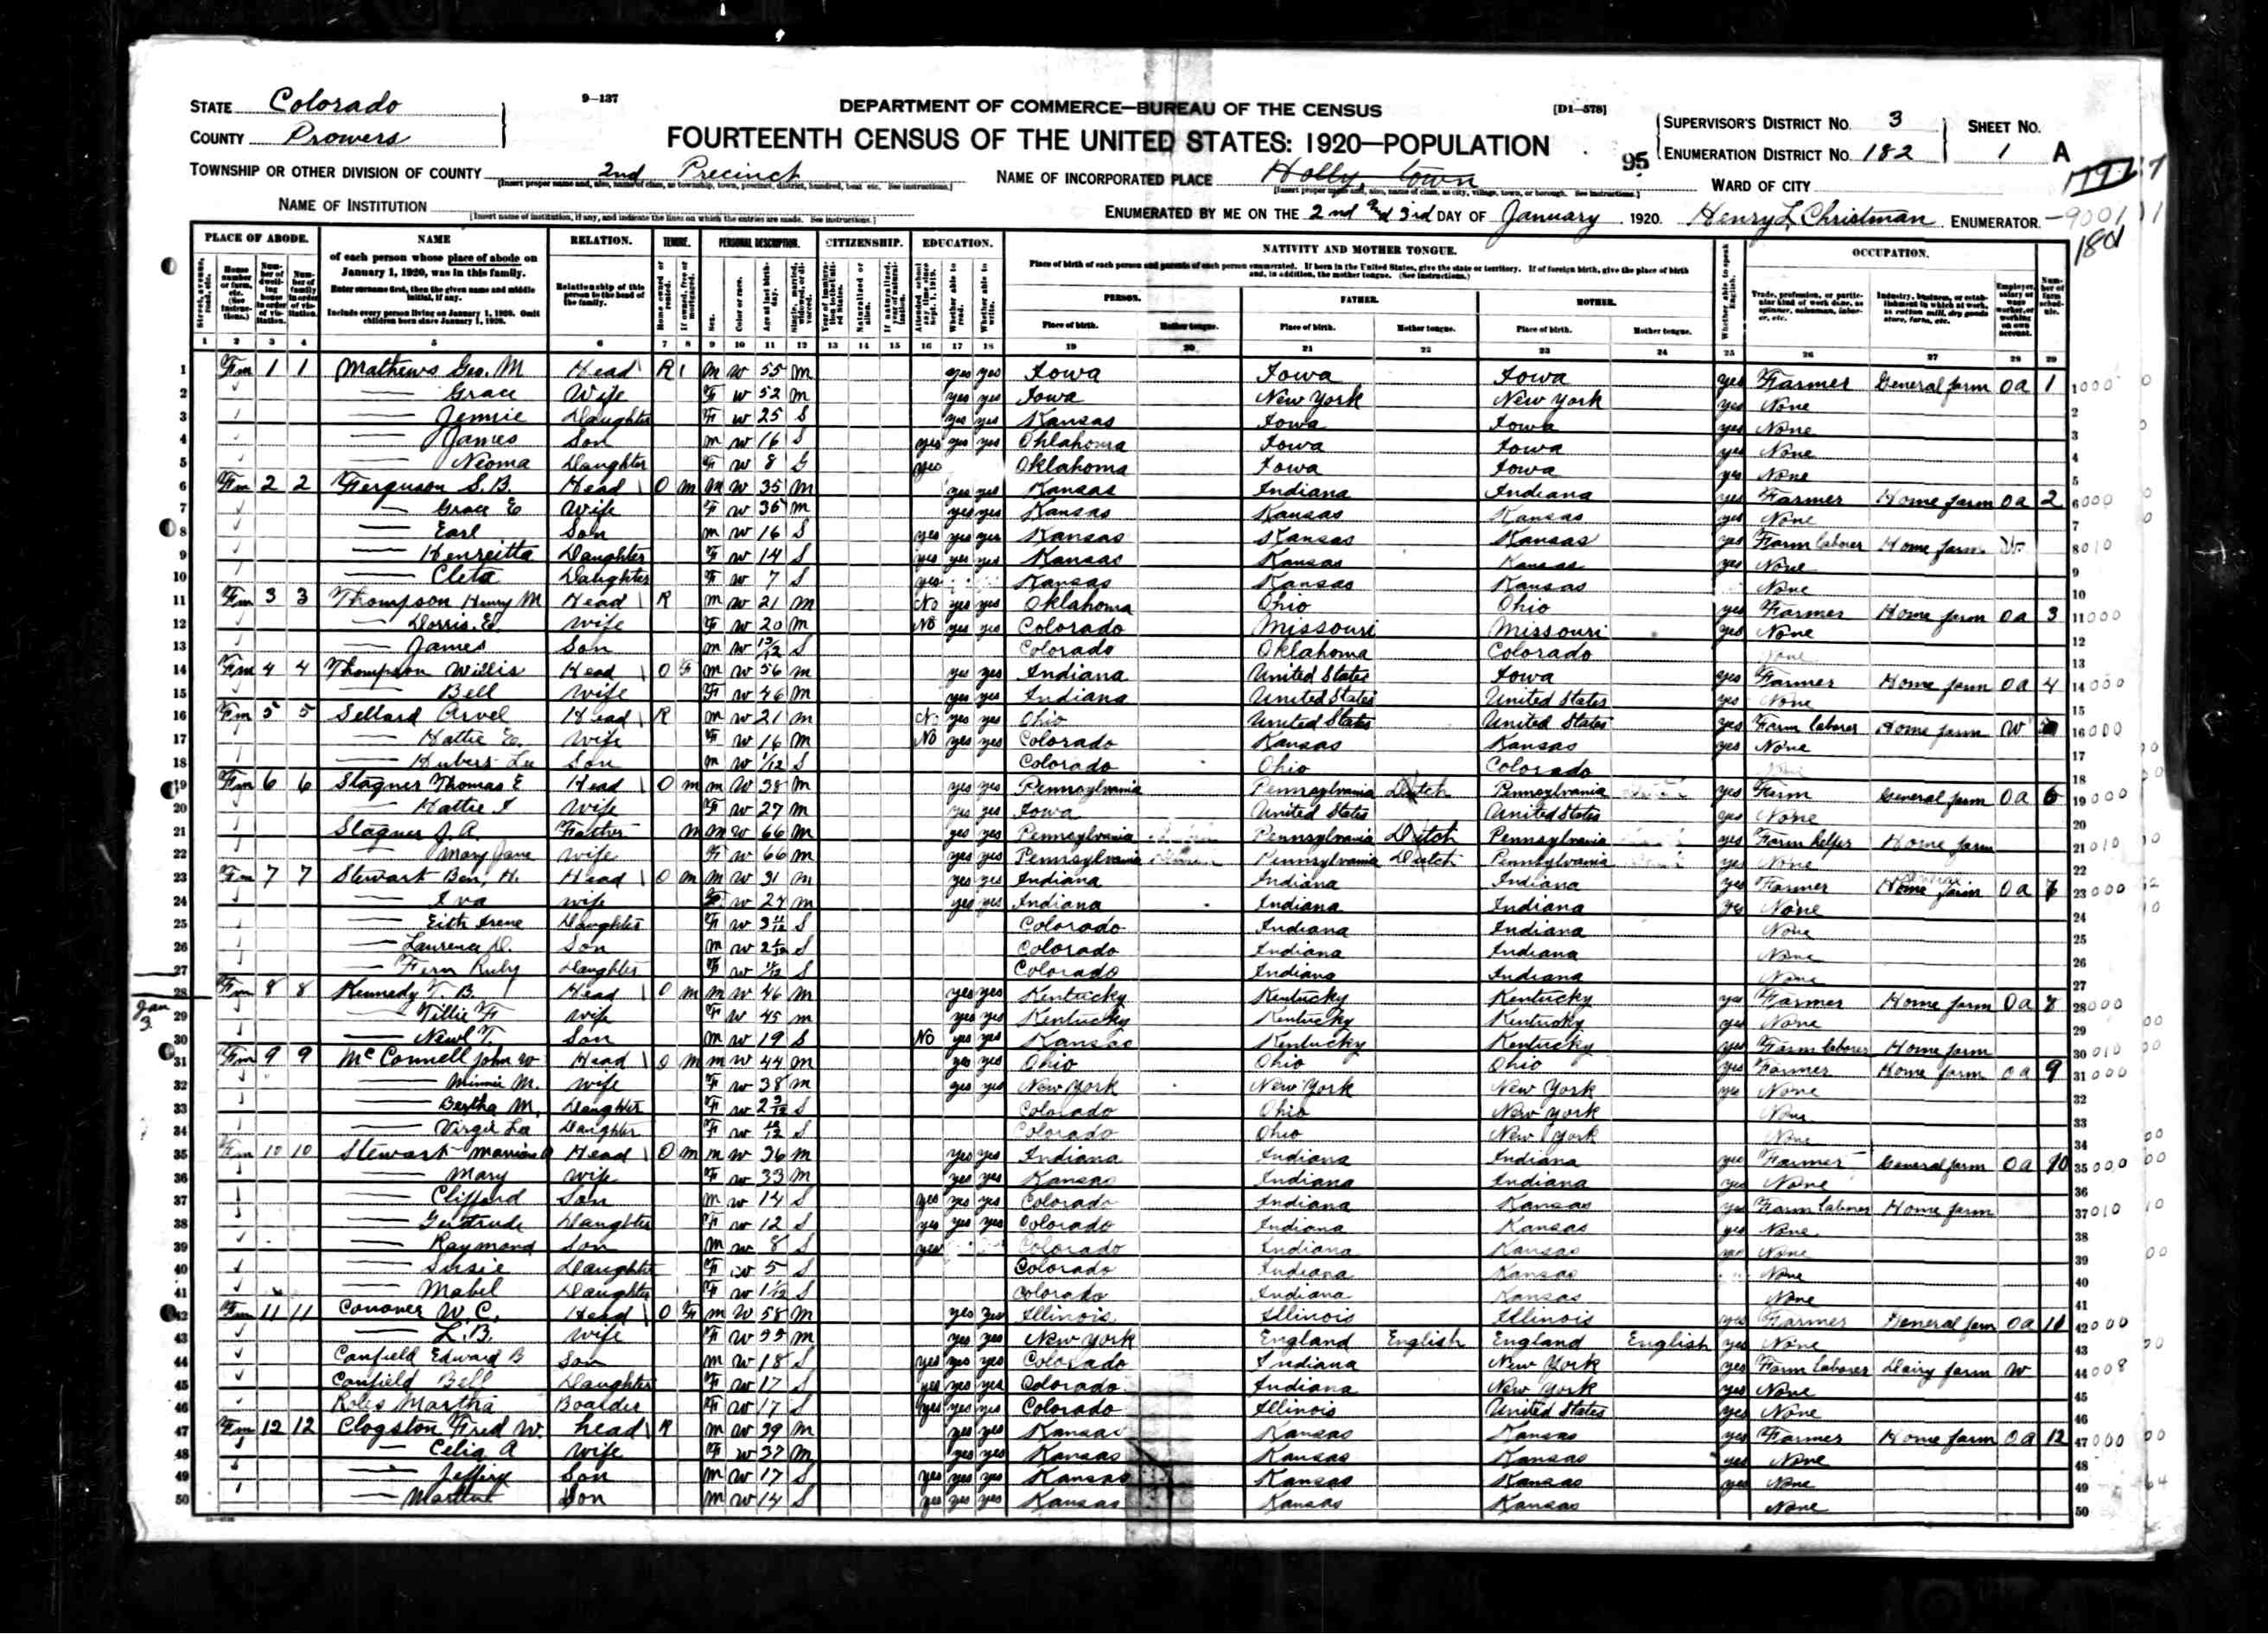 STATE Colorado
9-137
DEPARTMENT OF COMMERCE—BUREAU OF THE CENSUS
[D1-578]
COUNTY Prowers
FOURTEENTH CENSUS OF THE UNITED STATES: 1920—POPULATION
95
SUPERVISOR'S DISTRICT NO. 3
ENUMERATION DISTRICT NO. 182
SHEET NO. 1 A
TOWNSHIP OR OTHER DIVISION OF COUNTY 2nd Precinct
NAME OF INCORPORATED PLACE Holly, town
WARD OF CITY
NAME OF INSTITUTION
[Insert name of institution, if any, and indicate the lines on which the entries are made. See instructions.]
ENUMERATED BY ME ON THE 2nd and 3rd DAY OF January 1920. Henry L. Christman ENUMERATOR
PLACE OF ABODE. NAME RELATION. TENURE. PERSONAL DESCRIPTION. CITIZENSHIP. EDUCATION. NATIVITY AND MOTHER TONGUE. OCCUPATION.
of each person whose place of abode on January 1, 1920, was in this family.
Enter surname first, then the given name and middle initial, if any.
Include every person living on January 1, 1920. Omit children born since January 1, 1920.
Relationship of this person to the head of the family.
Place of birth of each person and parents of each person enumerated. If born in the United States, give the state or territory. If of foreign birth, give the place of birth and, in addition, the mother tongue. (See instructions.)
PERSON. FATHER. MOTHER.
Place of birth. Mother tongue. Place of birth. Mother tongue. Place of birth. Mother tongue.
1 2 3 4 5 6 7 8 9 10 11 12 13 14 15 16 17 18 19 20 21 22 23 24 25 26 27 28 29
1 Fm 1 1 Mathews Geo. M Head R m w 55 m yes yes Iowa Iowa Iowa yes Farmer General farm OA 1
2 Grace Wife F w 52 m yes yes Iowa New York New York yes None
3 Jennie Daughter F w 25 S yes yes Kansas Iowa Iowa yes None
4 James Son m w 16 S yes yes yes Oklahoma Iowa Iowa yes None
5 Neoma Daughter F w 8 S yes Oklahoma Iowa Iowa yes None
6 Fm 2 2 Ferguson S.B. Head O m m w 35 m yes yes Kansas Indiana Indiana yes Farmer Home farm OA 2
7 Grace E Wife F w 35 m yes yes Kansas Kansas Kansas yes None
8 Earl Son m w 16 S yes yes yes Kansas Kansas Kansas yes Farm laborer Home farm
9 Henreitta Daughter F w 14 S yes yes yes Kansas Kansas Kansas yes None
10 Cleta Daughter F w 7 S yes Kansas Kansas Kansas None
11 Fm 3 3 Thompson Henry M Head R m w 21 m No yes yes Oklahoma Ohio Ohio yes Farmer Home farm OA 3
12 Dorris E. wife F w 20 m No yes yes Colorado Missouri Missouri yes None
13 James Son m w S Colorado Oklahoma Colorado None
14 Fm 4 4 Thompson Willis Head O F m w 56 m yes yes Indiana United States Iowa yes Farmer Home farm OA 4
15 Bell wife F w 46 m yes yes Indiana United States United States yes None
16 Fm 5 5 Sellard Arvel Head R m w 21 m No yes yes Ohio United States United States yes Farm laborer Home farm W
17 Hattie E. wife F w 16 m No yes yes Colorado Kansas Kansas yes None
18 Lee Son m w 1/12 S Colorado Ohio Colorado
19 Fm 6 6 Stagner Thomas E Head O m m w 38 m yes yes Pennsylvania Pennsylvania Dutch Pennsylvania yes Farm General farm OA 6
20 Hattie I wife F w 27 m yes yes Iowa United States United States yes None
21 Stagner J.A. Father m m w 66 m yes yes Pennsylvania Pennsylvania Dutch Pennsylvania yes Farm helper Home farm
22 Mary Jane wife F w 66 m yes yes Pennsylvania Pennsylvania Dutch Pennsylvania yes None
23 Fm 7 7 Stewart Ben, H. Head O m m w 31 m yes yes Indiana Indiana Indiana yes Farmer Home farm OA 7
24 Iva wife F w 27 m yes yes Indiana Indiana Indiana yes None
25 Eith Irene Daughter F w 3 11/12 S Colorado Indiana Indiana None
26 Laurence D. Son m w S Colorado Indiana Indiana None
27 Fern Ruby Daughter F w S Colorado Indiana Indiana None
Jan 3.
28 Fm 8 8 Kennedy T. B. Head O m m w 46 m yes yes Kentucky Kentucky Kentucky yes Farmer Home farm OA 8
29 Tillie F wife F w 45 m yes yes Kentucky Kentucky Kentucky yes None
30 Newl T. Son m w 19 S No yes yes Kansas Kentucky Kentucky yes Farm laborer Home farm
31 Fm 9 9 McConnell John W Head O m m w 44 m yes yes Ohio Ohio Ohio yes Farmer Home farm OA 9
32 Minnie M. wife F w 38 m yes yes New York New York New York yes None
33 Bertha M. Daughter F w S Colorado Ohio New York None
34 Virgie Lee Daughter F w S Colorado Ohio New York None
35 Fm 10 10 Stewart Marrion Head O m m w 36 m yes yes Indiana Indiana Indiana yes Farmer General farm OA 10
36 Mary wife F w 33 m yes yes Kansas Indiana Indiana yes None
37 Clifford Son m w 14 S yes yes yes Colorado Indiana Kansas yes Farm laborer Home farm
38 Gertrude Daughter F w 12 S yes yes yes Colorado Indiana Kansas yes None
39 Raymond Son m w 8 S yes Colorado Indiana Kansas yes None
40 Susie Daughter F w 5 S Colorado Indiana Kansas None
41 Mabel Daughter F w S Colorado Indiana Kansas None
42 Fm 11 11 Conover W.C. Head O F m w 58 m yes yes Illinois Illinois Illinois yes Farmer General farm OA 11
43 L.B. wife F w 55 m yes yes New York England English England English yes None
44 Canfield Edward B Son m w 18 S yes yes yes Colorado Indiana New York yes Farm laborer Dairy farm W
45 Canfield Bell Daughter F w 17 S yes yes yes Colorado Indiana New York yes None
46 Martha Boarder F w 17 S yes yes yes Colorado Illinois United States yes None
47 Fm 12 12 Clogston Fred W. head R m w 39 m yes yes Kansas Kansas Kansas yes Farmer Home farm OA 12
48 Celia A wife F w 37 m yes yes Kansas Kansas Kansas yes None
49 Son m w 17 S yes yes yes Kansas Kansas Kansas yes None
50 Son m w 14 S yes yes yes Kansas Kansas Kansas None